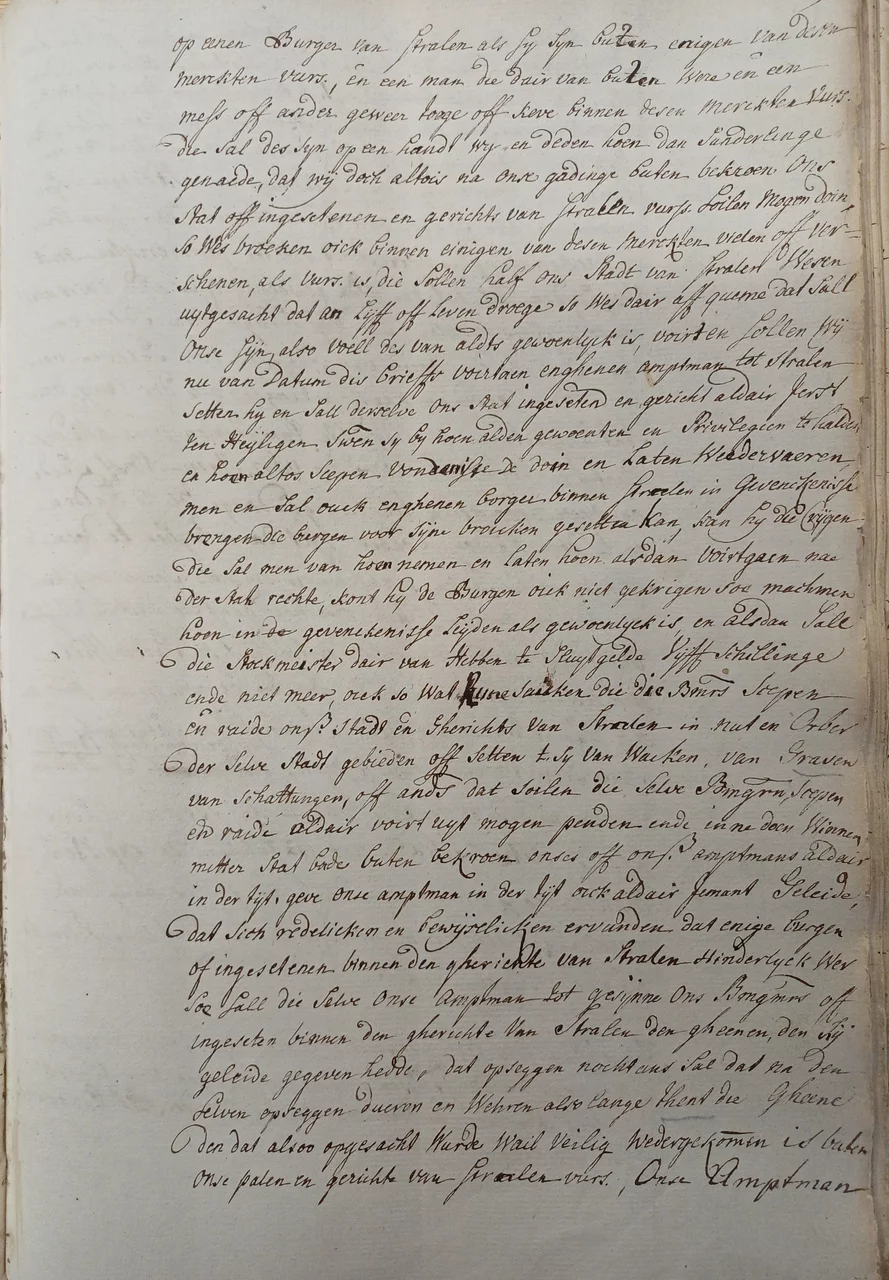 op eenen Burger van Stralen als sy syn buten enigen van desen
merckten vurs., en een man die dair van buten were en een
mess off ander geweer toege off keve binnen desen merckten vurs.
die sal des syn op een handt wy en deden hoen dan sunderlinge
genaede, dat wij doch altois na onse gadinge buten bekroen ons
stat off ingesetenen en gerichts van Stralen vurs. soilen mogen doin,
so wes broeken oick binnen einigen van desen merckten vielen off ver=
schenen, als vurs. is, die sollen half ons Stadt van Stralen wesen
uytgesacht dat an lyff off leven droege so wes dair aff queme dat sall
onse syn, also voell des van aldts gewoenlyck is, voirt en sollen wij
nu van Datum dis brieffs voirtaen enghenen amptman tot Stralen
setten hy en sall derselve ons stat ingeseten en gericht aldair ierst
ten Heyligen sweren sy by hoen alden gewoenten en Privilegien te halden
en hoen altos scepen vondenisse de doin en laten weedervaeren,
men en sal ouck enghenen borger binnen Straelen in gevenckenisse
brengen die burgen voor syne broicken gesetten kan, kan hy die crijgen
die sal men van hoen nemen en laten hoen alsdan voirtgaen nae
der stat rechte, kont hy de Burgen oick niet gekrigen soe machmen
hoen in de gevenckenisse leyden als gewoenlyck is, en alsdan sall
die stockmeister dair van hebben te sluytgelde vijff schillinge
ende niet meer, ouck so wat saicken die die Bmrs scepen
en raide ons. Stadt en Gherichts van Straelen in nut en orber
der selve stadt gebieden off setten t. sy van wacken, van graven
van schattungen, off ands dat soilen die selve Bmgrn, scepen
en raide aldair voirt uyt mogen penden ende inne doen winnen
mitter stat bode buten bekroen onses off ons. amptmans aldair
in der tijt, geve onse amptman in der tijt oick aldair iemant geleide,
dat sich redelicken en bewijselicken ervanden dat enige burgen
of ingesetenen binnen den gherichte van Stralen hinderlyck wer
soe sall die selve onse amptman tot gesynne ons Bmgmrs off
ingeseten binnen den gherichte van Stralen den gheenen, den hy
geleide gegeven hedde, dat opseggen nochtans sal dat na den
selven opseggen dueren en wehren also lange thent die gheene
den dat alsoo opgesacht wurde wail veilig wedergekomen is buten
onse palen en gerichte van Straelen vurs., Onse Amptman